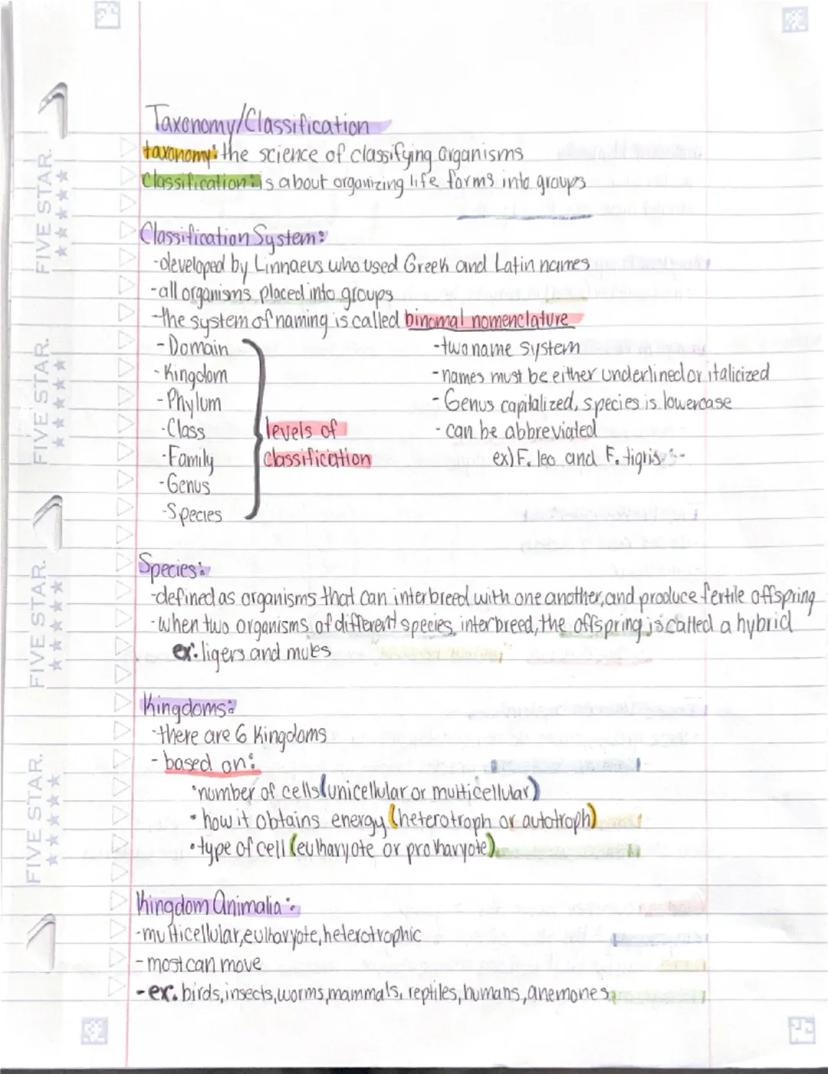 Taxonomy/Classification
taxonomy: the science of classifying organisms
Classification: is about organizing life forms into groups
Classification System:
-developed by Linnaeus who used Greek and Latin names
-all organisms placed into groups
-the system of naming is called binomal nomenclature
-Domain
-Kingdom
-Phylum
-Class
-Family
-Genus
-Species
levels of
classification
-two name system
-names must be either underlined or italicized
-Genus capitalized, species is lowercase
-can be abbreviated
ex) F. leo and F. tigris
Species:
-defined as organisms that can interbreed with one another, and produce fertile offspring
-when two organisms of different species interbreed, the offspring is called a hybrid
ex. ligers and mules
Kingdoms:
-there are 6 Kingdoms
-based on:
•number of cells (unicellular or multicellular)
•how it obtains energy (heterotroph or autotroph)
•type of cell (eukaryote or prokaryote)
Kingdom Animalia:
-multicellular, eukaryote, heterotrophic
-most can move
-ex. birds, insects, worms, mammals, reptiles, humans, anemones
FIVE STAR.
FIVE STAR.
FIVE STAR.
FIVE STAR.